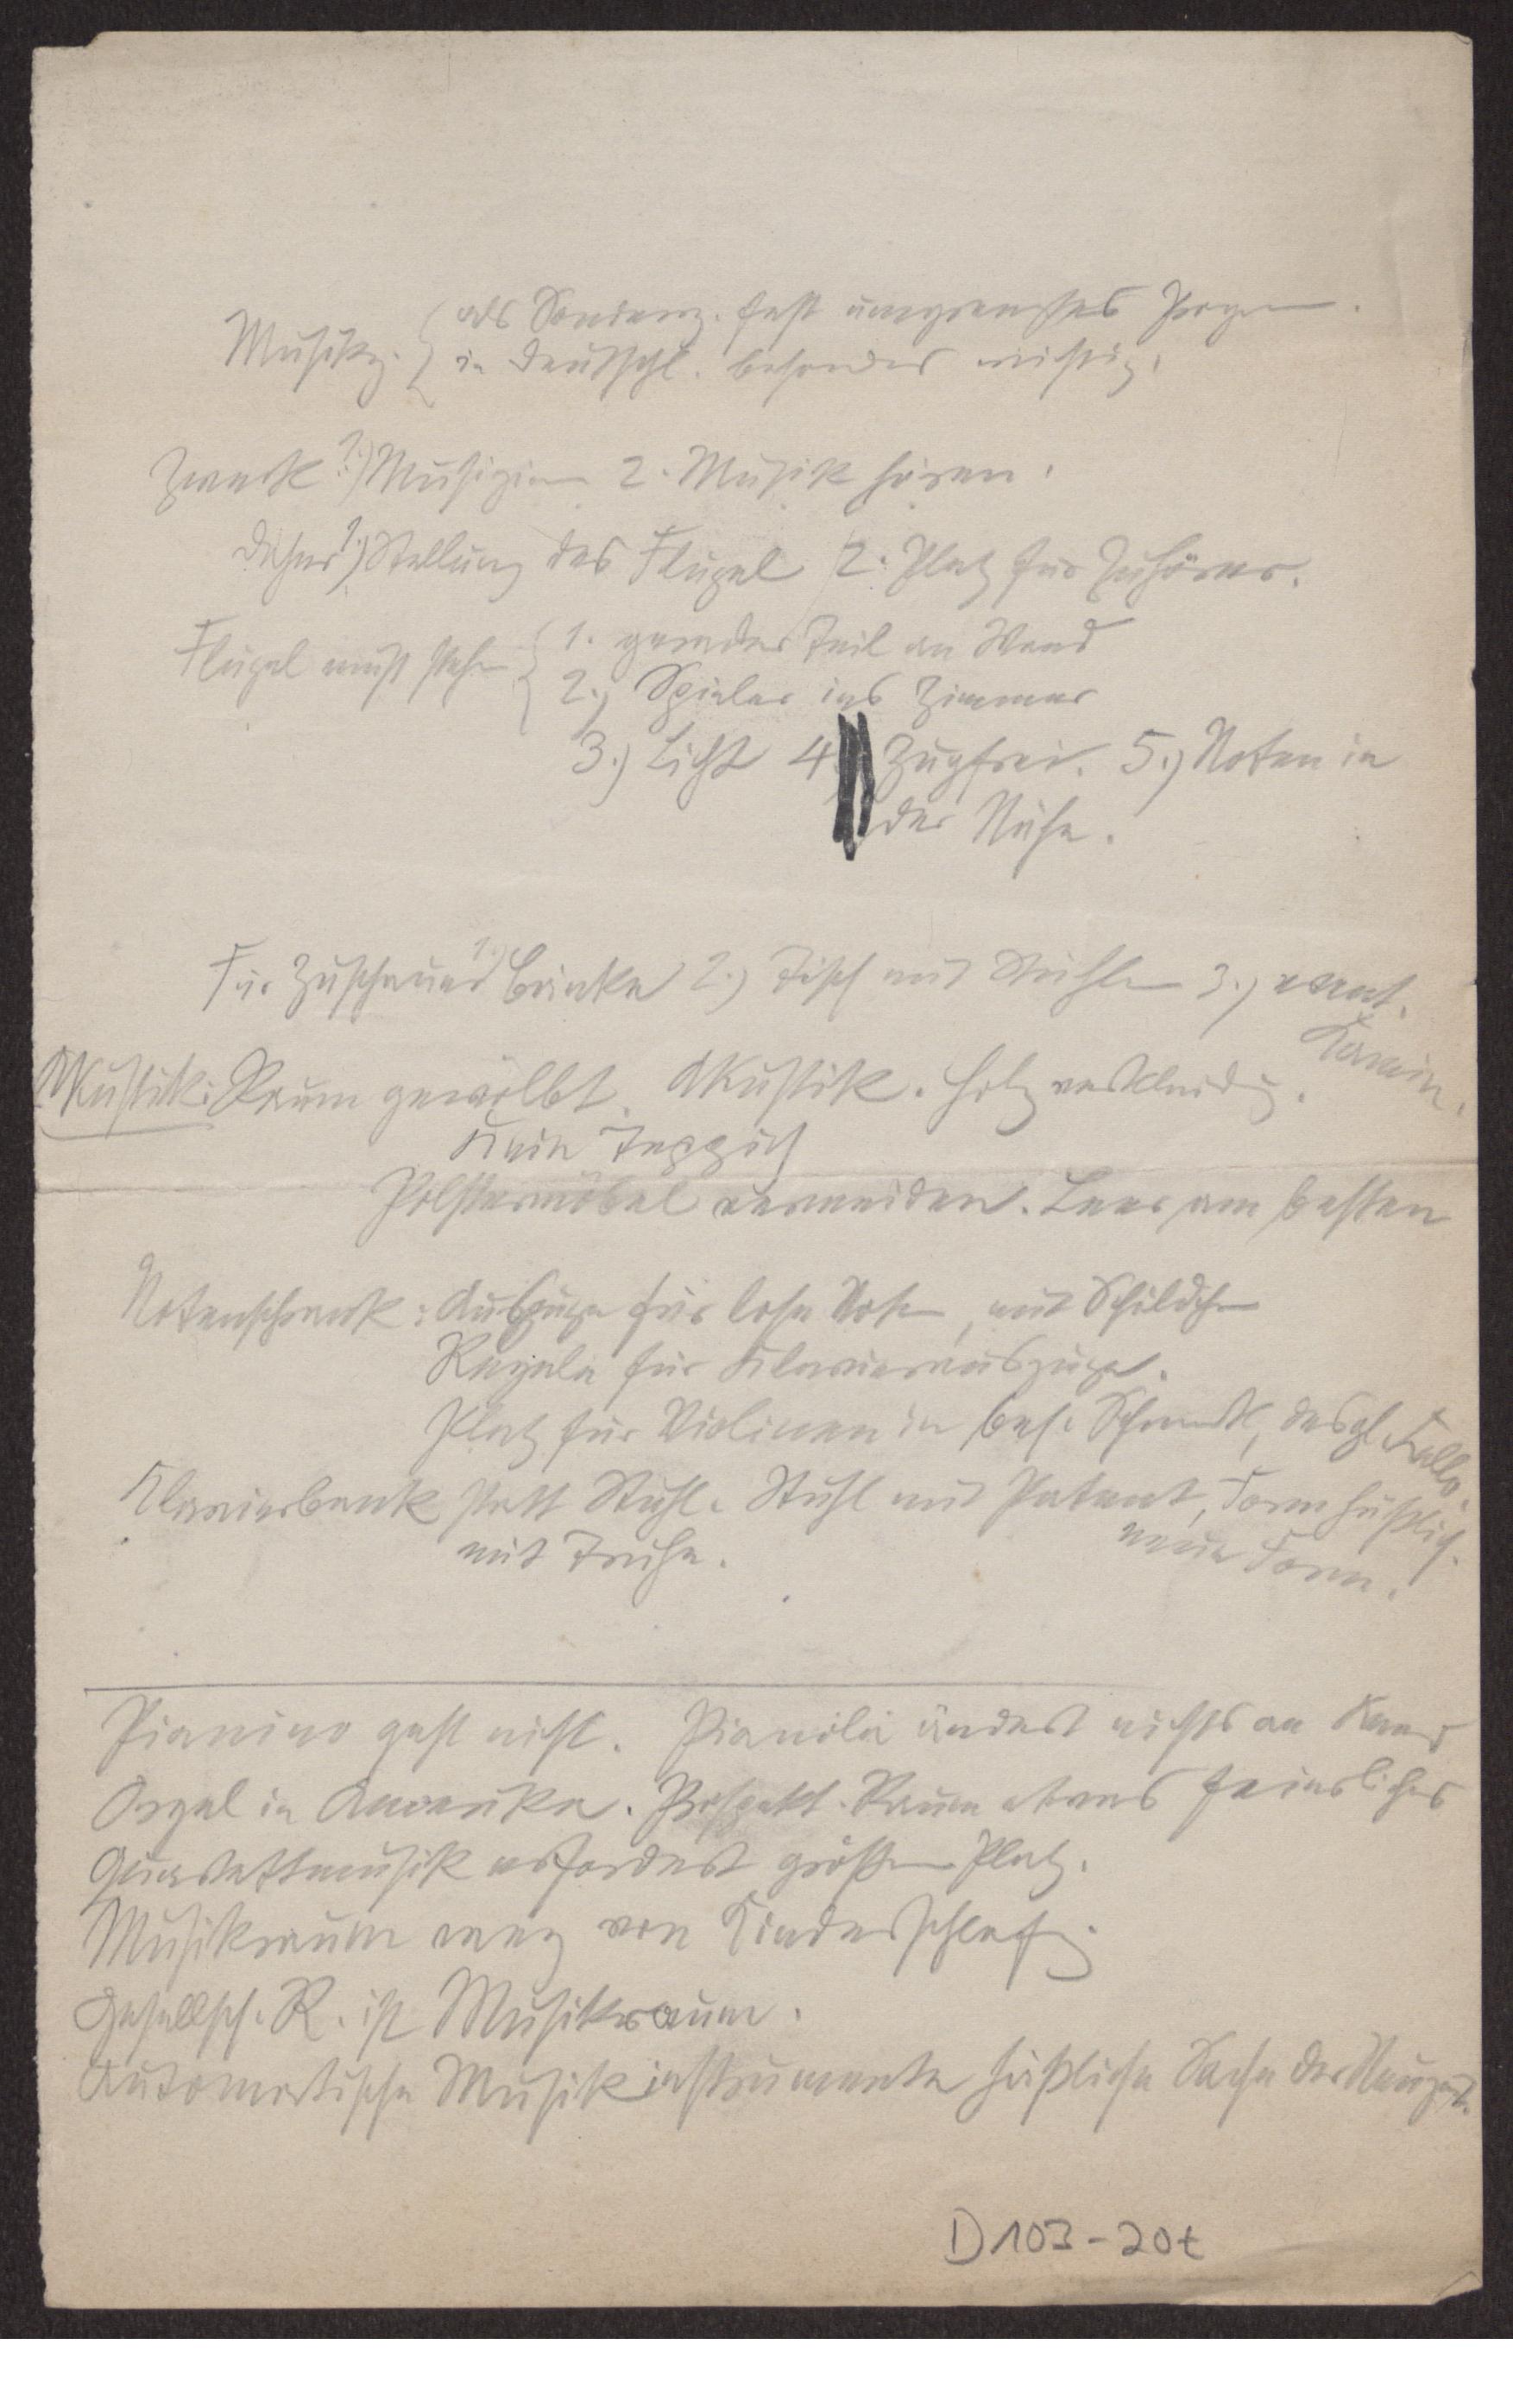 Musikz. { als Sonderz. fest umgrenztes Progr.
in Deutschl. besonders wichtig.
Zweck 1.) Musizieren 2. Musik hören.
Daher 1.) Stellung des Flügel 2. Platz für Zuhörer.
Flügel muß stehen { 1. gerader Teil an Wand
2.) Spieler ins Zimmer
3.) Licht 4 Zugfrei. 5.) Noten in
der Nähe.
Für Zuschauer 1.) Bänke 2.) Tisch mit Stühlen 3.) event.
Kamin.
Akustik: Raum gewölbt. Akustik. Holzverkleidg.
Kein Teppich
Polstermöbel vermeiden. Leer am besten
Notenschrank: Auszüge für lose Noten, mit Schildchen
Regale für Klavierauszüge.
Platz für Violinen in bes. Schrank, desgl. Cello.
Klavierbank statt Stuhl. Stuhl mit Patent, Form häßlich.
neue Form.
mit Truhe.
Pianino geht nicht. Pianola ändert nichts an
Orgel in Amerika. Prospekt. Raum etwas feierliches
Quartettmusik erfordert größeren Platz.
Musikraum weg von Kinderschlafz.
Gesellsch. R. ist Musikraum.
Automatische Musikinstrumente häßliche Sache der Neuzeit.
D 103-20t